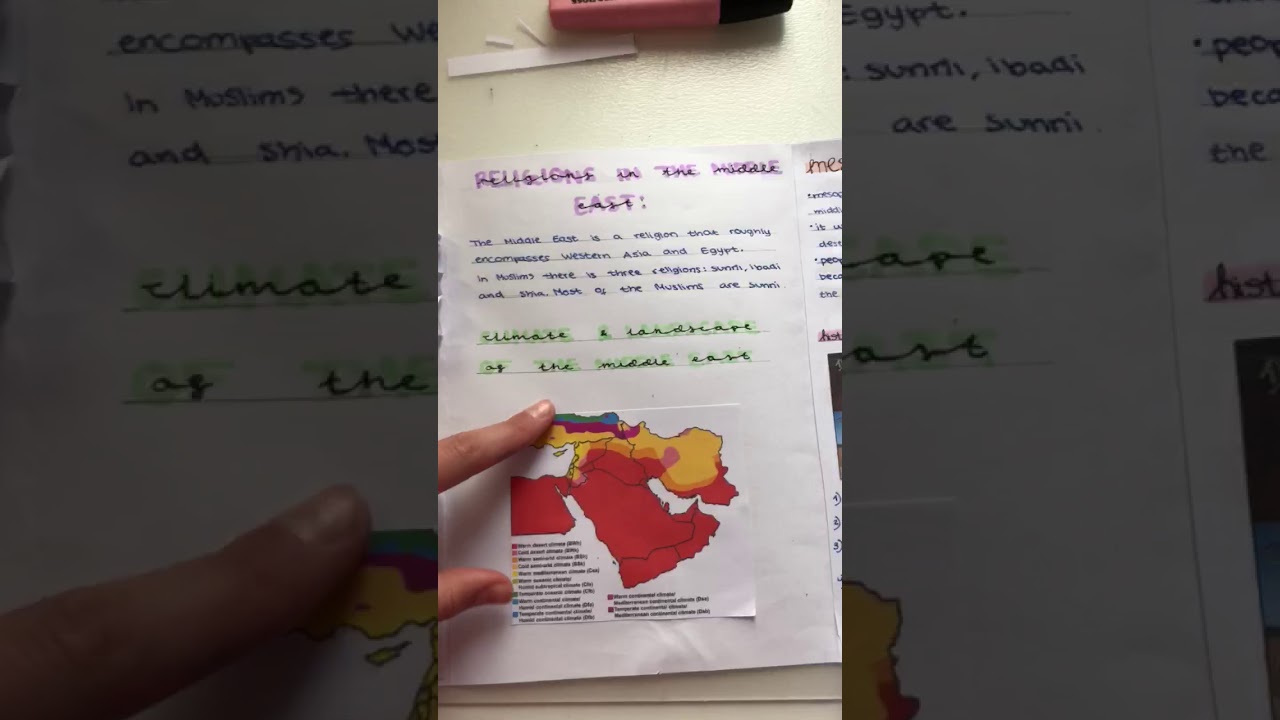 RELIGIONS IN THE MIDDLE
religions in the middle
EAST:
east
The Middle East is a religion that roughly
encompasses Western Asia and Egypt.
In Muslims there is three religions: sunni, ibadi
and shia. Most of the Muslims are sunni.
CLIMATE & LANDSCAPE
climate & landscape
OF THE MIDDLE EAST
of the middle east
Warm desert climate (BWh)
Cold desert climate (BWk)
Warm semi-arid climate (BSh)
Cold semi-arid climate (BSk)
Warm mediterranean climate (Csa)
Warm oceanic climate/
Humid subtropical climate (Cfa)
Temperate oceanic climate (Cfb)
Warm continental climate/
Humid continental climate (Dfa)
Temperate continental climate/
Humid continental climate (Dfb)
Warm continental climate/
Mediterranean continental climate (Dsa)
Temperate continental climate/
Mediterranean continental climate (Dsb)
mes
middl
• it
• peop
beca
the
hist
1)
2)
3)